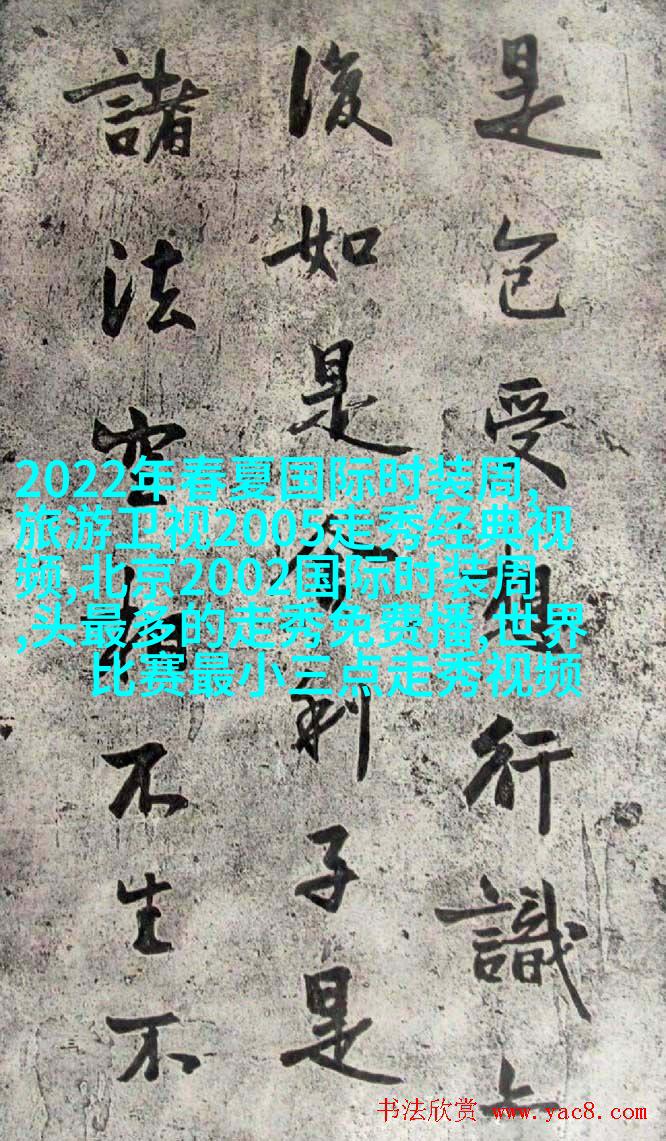 是色受想行識
復如是舍利子是
諸法空相不生不
2022年春夏国际时装周,
旅游卫视2005走秀经典视
频,北京2002国际时装周
,头最多的走秀免费播,世界
比赛最小三点走秀视频
书法欣赏 www.yac8.com